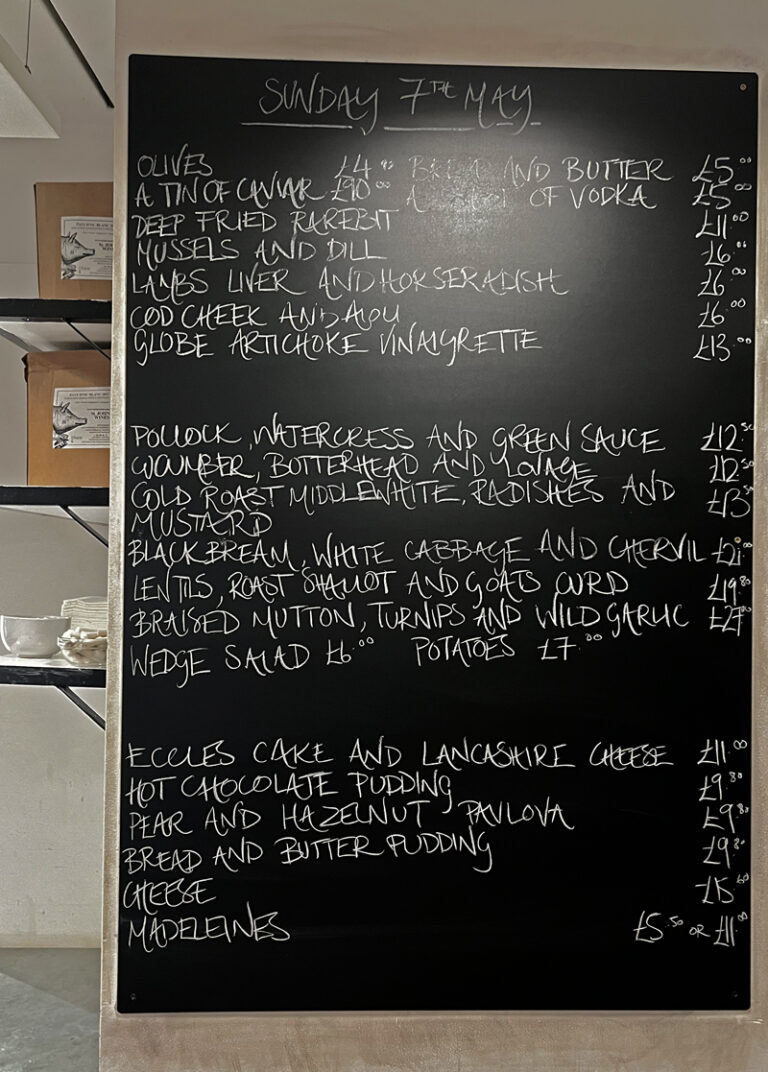 SUNDAY 7TH MAY
OLIVES £4.80 BREAD AND BUTTER £5.00
A TIN OF CAVIAR £90.00 A OF VODKA £5.00
DEEP FRIED RAREBIT £11.00
MUSSELS AND DILL £6.00
LAMBS LIVER AND HORSERADISH £6.00
COD CHEEK AND AIOLI £6.00
GLOBE ARTICHOKE VINAIGRETTE £13.00
POLLOCK, WATERCRESS AND GREEN SAUCE £12.50
CUCUMBER, BUTTERHEAD AND LOVAGE £12.50
COLD ROAST MIDDLEWHITE, RADISHES AND £13.50
MUSTARD
BLACK BREAM, WHITE CABBAGE AND CHERVIL £21.00
LENTILS, ROAST SHALLOT AND GOATS CURD £19.80
BRAISED MUTTON, TURNIPS AND WILD GARLIC £27.00
WEDGE SALAD £6.00 POTATOES £7.00
ECCLES CAKE AND LANCASHIRE CHEESE £11.00
HOT CHOCOLATE PUDDING £9.80
PEAR AND HAZELNUT PAVLOVA £9.80
BREAD AND BUTTER PUDDING £9.80
CHEESE £15.60
MADELEINES £5.50 OR £11.00